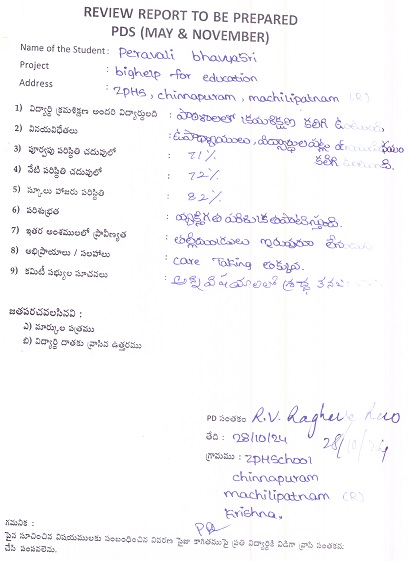 REVIEW REPORT TO BE PREPARED
PDS (MAY & NOVEMBER)
Name of the Student : Peravali bhavyaSri
Project : bighelp for education
Address : ZPHS, chinnapuram, machilipatnam (R)
1) విద్యార్థి క్రమశిక్షణ అందరి విద్యార్థులతో : పాఠశాలలో క్రమశిక్షణ కలిగి
2) వినయవిధేతలు : ఉపాధ్యాయులు,
కలిగి
3) పూర్వపు పరిస్థితి చదువులో : 71%
4) నేటి పరిస్థితి చదువులో : 72%
5) స్కూలు హాజరు పరిస్థితి : 82%
6) పరిశుభ్రత :
7) ఇతర అంశములలో ప్రావీణ్యత : తల్లిదండ్రులు ఇద్దరూ
8) అభిప్రాయాలు / సలహాలు : care Taking తక్కువ.
9) కమిటీ సభ్యుల సూచనలు : అన్ని విషయాలలో శ్రద్ధ
జతపరచవలసినవి :
ఎ) మార్కుల పత్రము
బి) విద్యార్థి దాతకు వ్రాసిన ఉత్తరము
PD సంతకం : R.V. Raghava Rao
తేది : 28/10/24 28/10/24
గ్రామము : ZPHSchool
chinnapuram
machilipatnam (R)
Krishna.
గమనిక :
పైన సూచించిన విషయములకు సంబంధించిన వివరణ పైజు కాగితముపై ప్రతి విద్యార్థికి విడిగా వ్రాసి సంతకము
చేసి పంపవలెను.